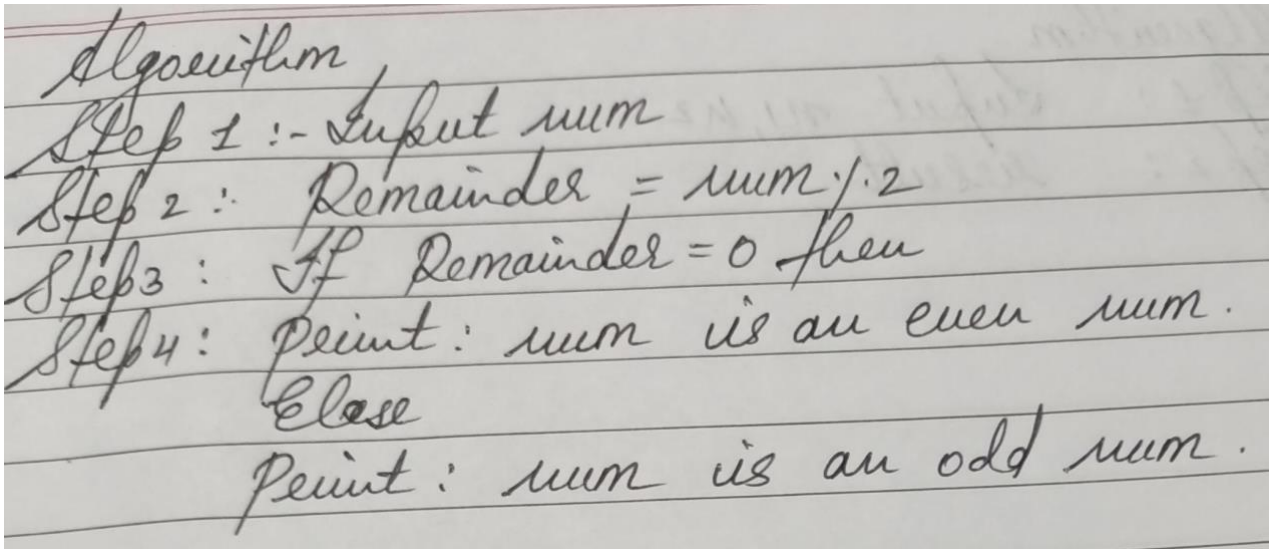 Algorithm
Step 1 :- Input num
Step 2 : Remainder = num % 2
Step3 : If Remainder = 0 then
Step4 : Print : num is an even num.
Else
Print : num is an odd num.